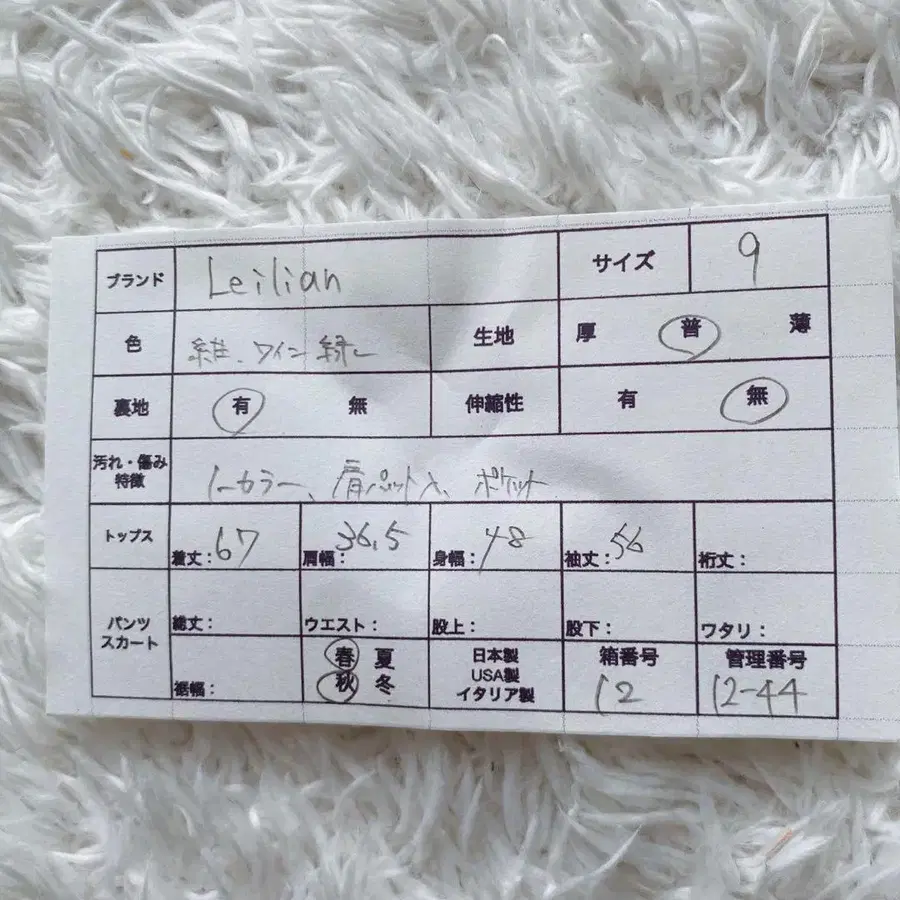 ブランド Leilian サイズ 9
色 紺、ワイン 緑 生地 厚 普 薄
裏地 有 無 伸縮性 有 無
汚れ・傷み
特徴 ノーカラー、肩パット入、ポケット
トップス 着丈：67 肩幅：36.5 身幅：48 袖丈：56 裄丈：
パンツ
スカート 総丈： ウエスト： 股上： 股下： ワタリ：
裾幅： 春 夏
秋 冬
日本製
USA製
イタリア製
箱番号
12
管理番号
12-44